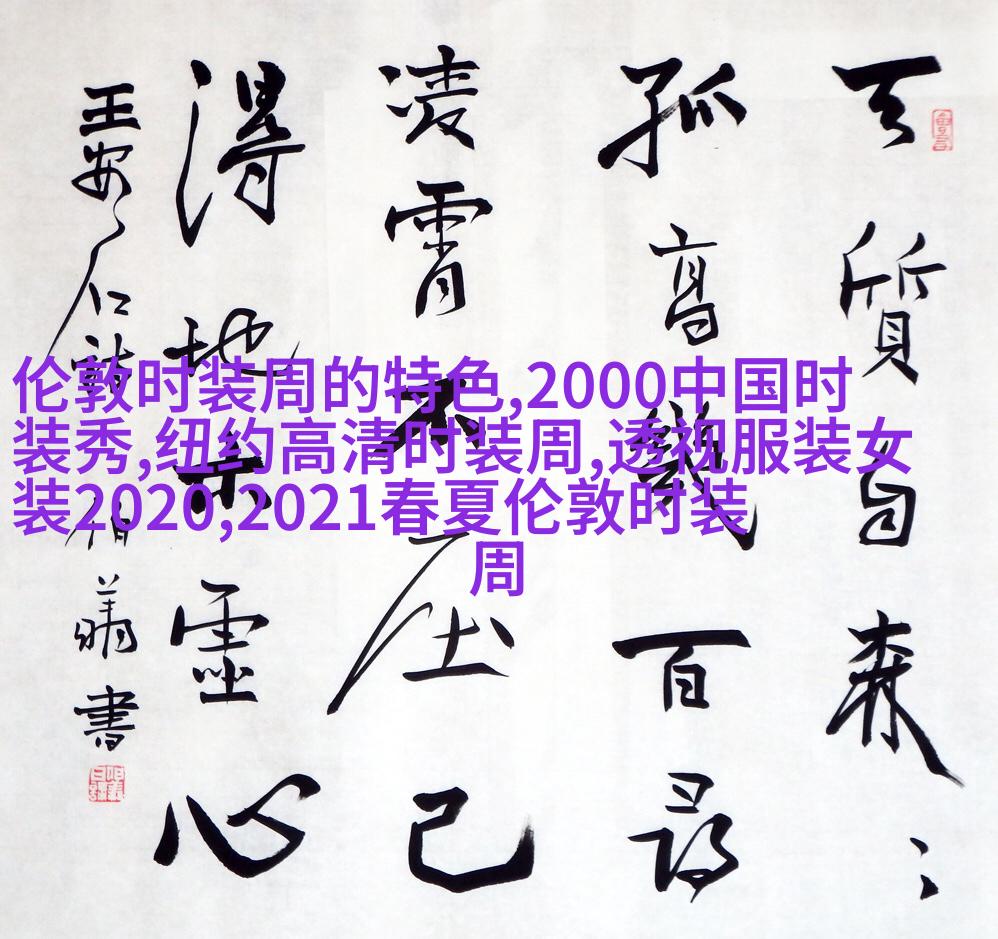 伦敦时装周的特色,2000中国时
装秀,纽约高清时装周,透视服装女
装2020,2021春夏伦敦时装
周
天質自森〻
孤高幾百尋
凌霄不屈己
得地本虛心
王安石詩 書